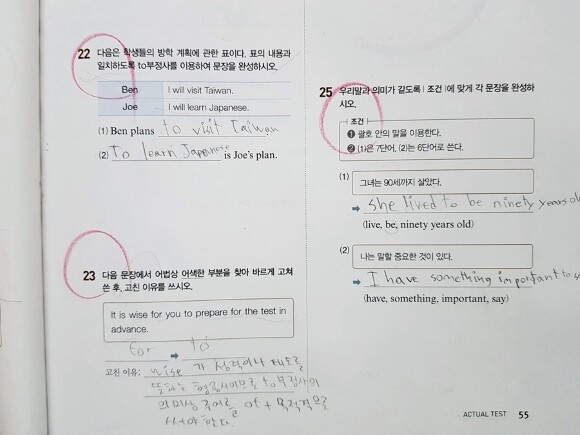 22 다음은 학생들의 방학 계획에 관한 표이다. 표의 내용과
일치하도록 to부정사를 이용하여 문장을 완성하시오.
Ben I will visit Taiwan.
Joe I will learn Japanese.
(1) Ben plans to visit Taiwan
(2) To learn Japanese is Joe's plan.
23 다음 문장에서 어법상 어색한 부분을 찾아 바르게 고쳐
쓴 후, 고친 이유를 쓰시오.
It is wise for you to prepare for the test in
advance.
for ➡ to
고친 이유: wise 가 성격이나 태도를
형용사이므로 to부정사의
의미상 주어를 of + 목적격으로
써야 한다.
25 우리말과 의미가 같도록 |조건|에 맞게 각 문장을 완성하
시오.
조건
❶ 괄호 안의 말을 이용한다.
❷ (1)은 7단어, (2)는 6단어로 쓴다.
(1) 그녀는 90세까지 살았다.
➡ she lived to be ninety years ol
(live, be, ninety years old)
(2) 나는 말할 중요한 것이 있다.
➡ I have something important to s
(have, something, important, say)
ACTUAL TEST 55